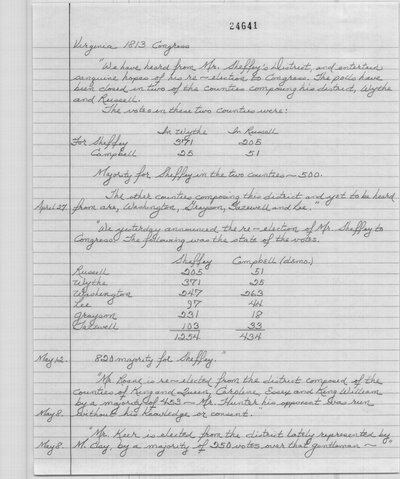 24641
Virginia 1813 Congress
"We have heard from Mr. Sheffey's District, and entertain
sanguine hopes of his re-election to Congress. The polls have
been closed in two of the counties composing his district, Wythe
and Russell.
The votes in these two counties were:
In Wythe In Russell
For Sheffey 371 205
Campbell 25 51
Majority for Sheffey in the two counties ~ 500.
The other counties composing this district and yet to be heard
April 27. from are, Washington, Grayson, Tazewell and Lee."
"We yesterday announced the re-election of Mr. Sheffey to
Congress. The following was the state of the votes.
Sheffey Campbell (demo.)
Russell 205 51
Wythe 371 25
Washington 247 263
Lee 97 44
Grayson 231 18
Tazewell 103 33
1254 434
May 12. 820 majority for Sheffey."
"Mr. Roane is re-elected from the district composed of the
counties of King and Queen, Caroline, Essex and King William
by a majority of 453 - Mr. Hunter his opponent was run
May 8. without his knowledge or consent."
"Mr. Kerr is elected from the district lately represented by
May 8. M. Clay, by a majority of 250 votes over that gentleman ~ "